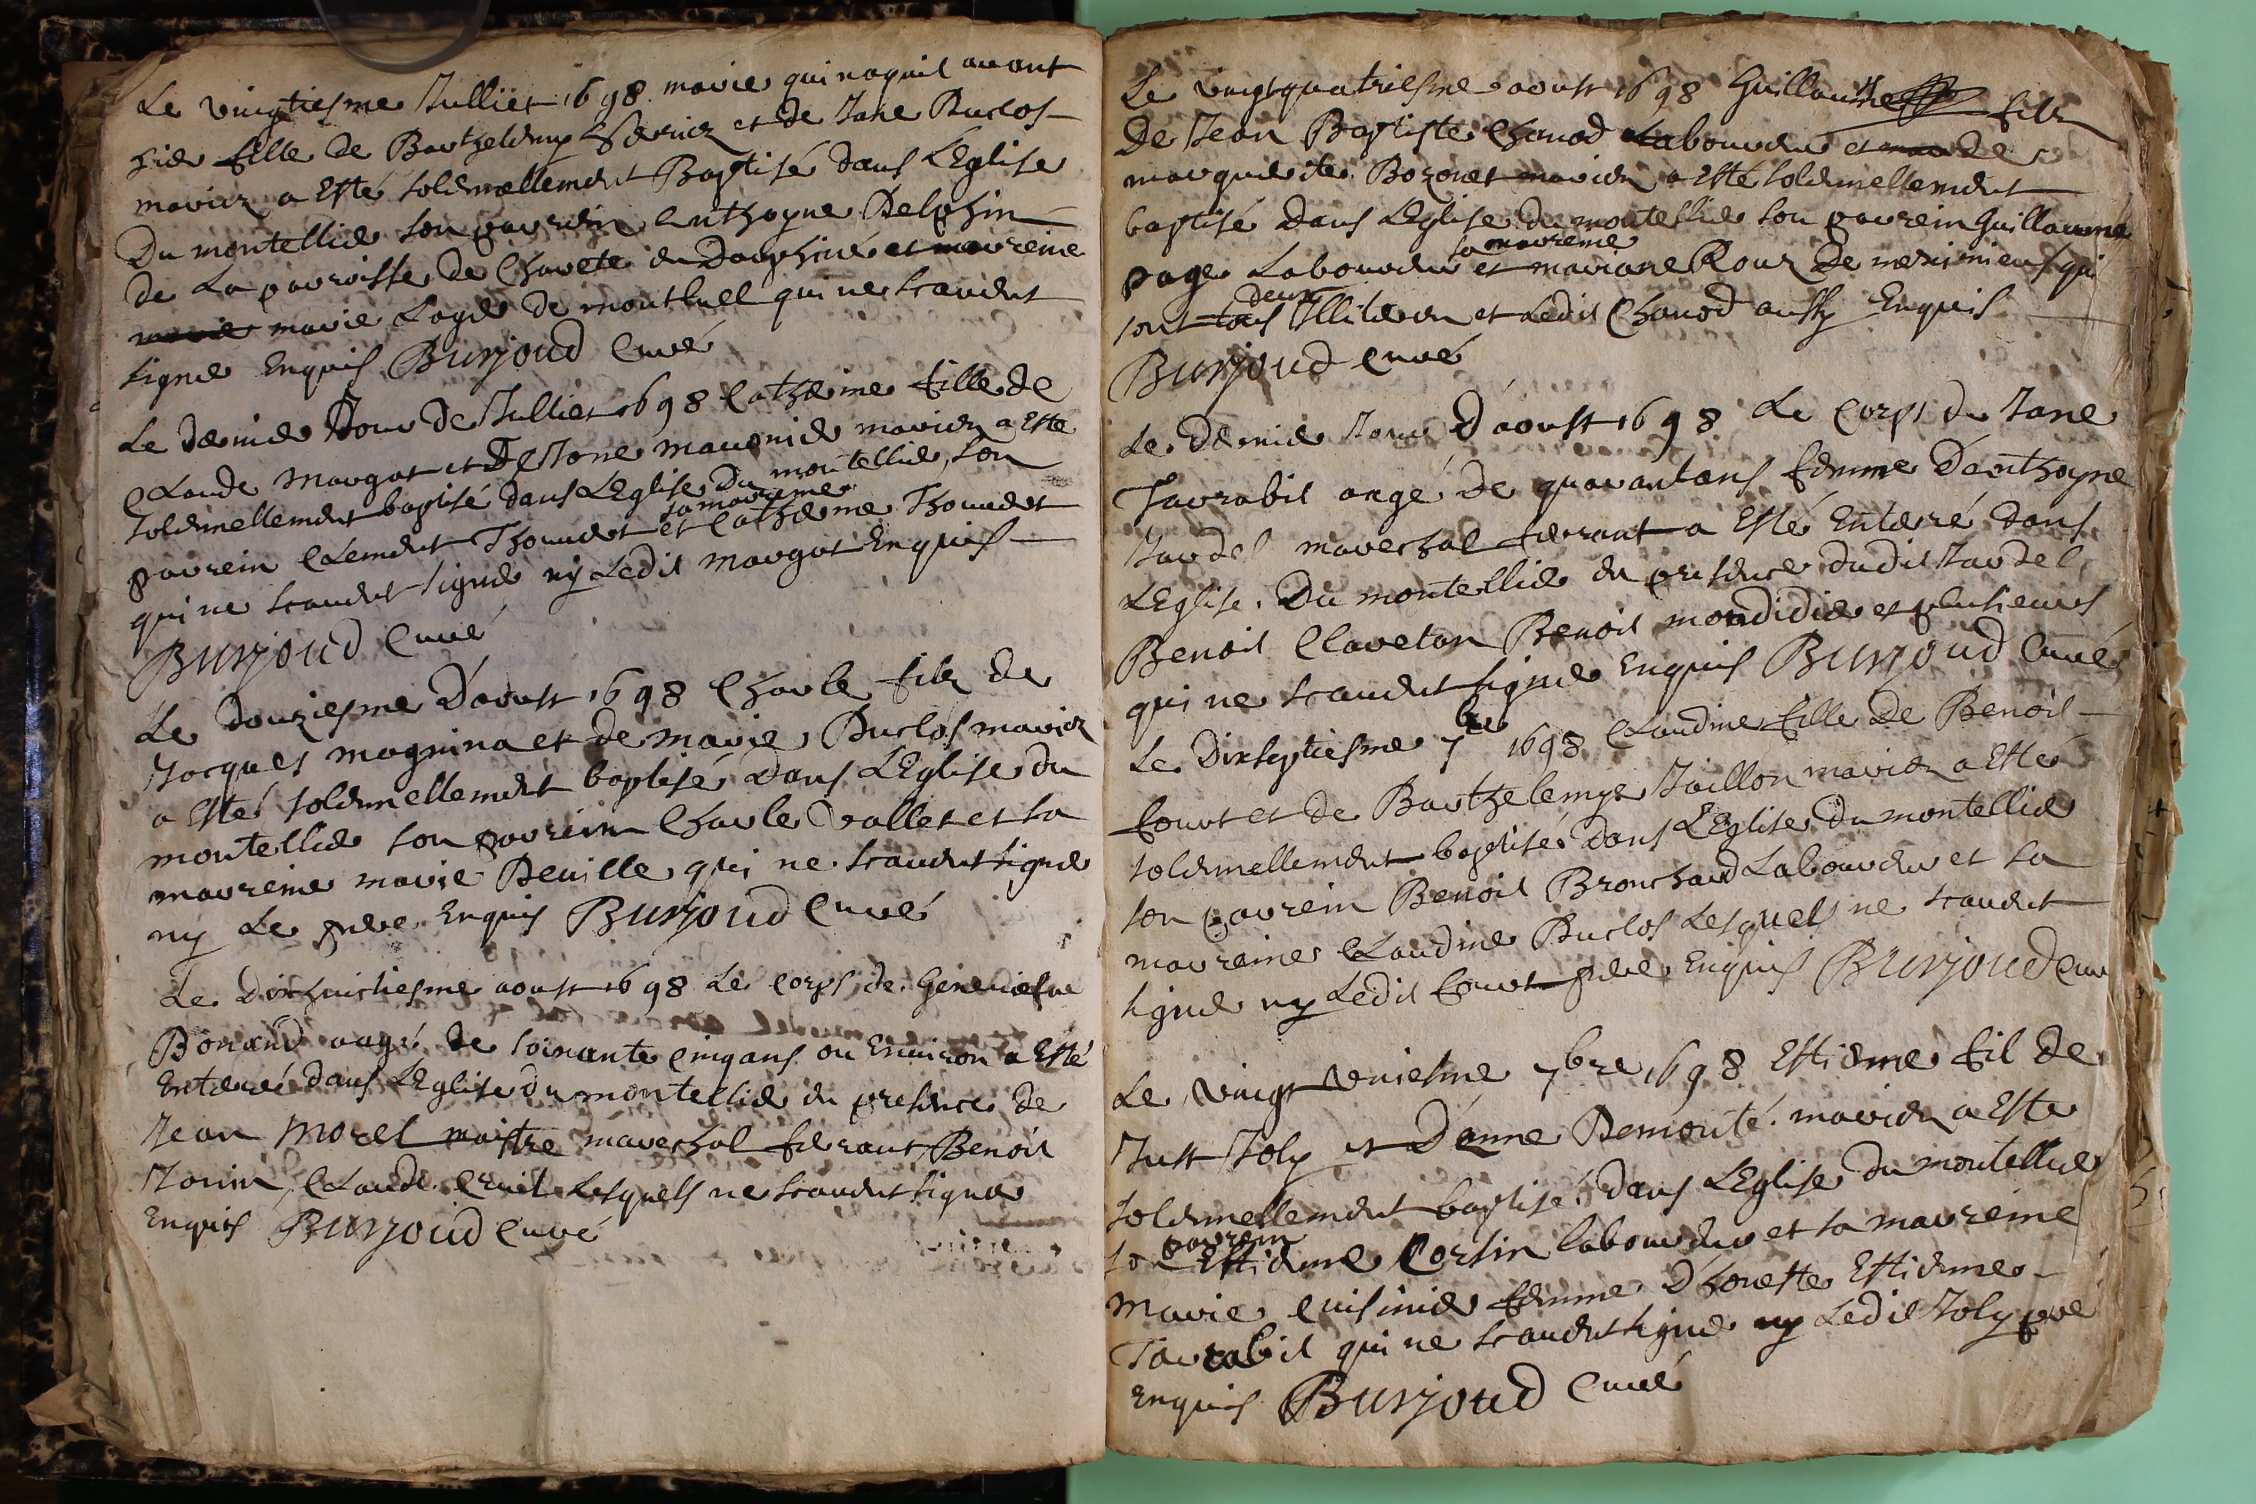 Le vingtiesme Julliet 1698 marie qui naquit avant
hier fille de Barthelemy et de Jane Duclos
mariez a Esté solemnellement Baptisé dans L'Eglise
Du montellier son parrein Anthoyne Delphin
de La parroisse de Chavete en Dauphiné et marreine
marie Loyer de montluel qui ne scavent
signer Enquis Burjoud Curé
Le dernier Jour de Julliet 1698 Catherine fille de
Claude Margot et De Jane mauvernier mariez a Esté
solemnellement baptisé dans L'Eglise Du montellier, son
parrein Clement Thouvent et sa marreine Catherine Thouvent
qui ne scavent signer ny Ledit margot Enquis
Burjoud Curé
Le douziesme D'aoust 1698 Charle filz de
Jacques magnina et de marie Duclos mariez
a Esté solemnellement baptisé dans L'Eglise du
montellier son parrein Charle Vallet et sa
marreine marie Deville qui ne scavent signer
ny Le pere Enquis Burjoud Curé
Le Dixhuictiesme aoust 1698 Le corps de Geneviefve
Bonard aagé de soixante cinq ans ou Environ a Esté
Enterré dans L'Eglise Du montellier en presence de
Jean Morel maistre mareschal ferrant, Benoit
Morin, Claude Cruil Lesquels ne scavent signer
Enquis Burjoud Curé
Le vingtquatriesme aoust 1698 Guillaume filz
De Jean Baptiste Chanod Laboureur et De
marguerite Bozonet mariez a Esté solemnellement
baptisé Dans L'Eglise du montellier son parrein Guillaume
page Laboureur et sa marreine mariane Roux De meximieux qui
sont tous deux Illiterez et Ledit Chanod aussy Enquis
Burjoud Curé
Le Dernier Jour D'aoust 1698 Le Corps de Jane
Tarrabit aagé De quarantans femme D'anthoyne
Jardel mareschal ferrant a Esté Enterré dans
L'Eglise Du montellier en presence dudit Jardel
Benoit Claveton Benoit mondidier et plusieurs
qui ne scavent signer Enquis Burjoud Curé
Le Dixseptiesme 7bre 1698 Claudine fille De Benoit
Court et de Barthelemye Taillon mariez a Esté
solemnellement baptisé Dans L'Eglise Du montellier
son parrein Benoit Brouchard Laboureur et sa
marreine Claudine Duclos Lesquels ne scavent
signer ny Ledit Court pere Enquis Burjoud Curé
Le vingt vniesme 7bre 1698 Estienne fil De
Just Joly et D'anne Demonté mariez a Esté
solemnellement baptisé dans L'Eglise Du montellier
son parrein Estienne Corsin laboureur et sa marreine
Marie Cuisinier femme D'honeste Estienne
Tarrabit qui ne scavent signer ny Ledit Joly pere
Enquis Burjoud Curé